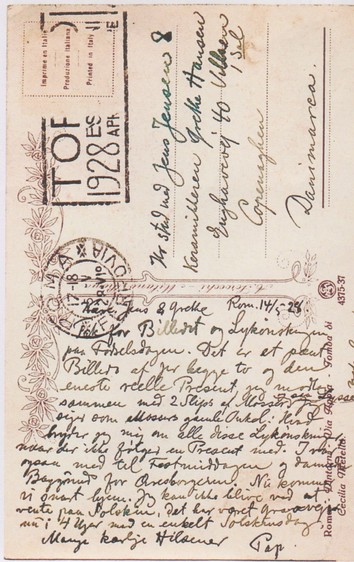 Imprime en Italie
Produzione Italiana
Printed in Italy
TOF
1928 ES
APR
ROMA FERROVIA
17-18
Hr stud. Jens Jensen &
Grethe Hansen
Enghavevej 40
Copenaghen
Danimarca
4375-37
Rom. 14/5-28
Kære Jens & Grethe
for Billedet og Lykønskningen
paa Fødselsdagen. Det er et pænt
Billede af Jer begge to og den
eneste reelle Present, jeg modtog
sammen med 2 Slips af
siger som gamle Onkel: Hvad
bryder jeg mig om alle disse Lykønskninger
naar der ikke følger en Present med: I var
ogsaa med til Festmiddagen og dannede
Baggrund for Øresborgeren. Nu kommer
vi snart hjem. Jeg kan ikke blive ved at
vente paa Solskin, det har været graavejr
nu i 4 Uger med en enkelt Solskinsdag
Mange kærlige Hilsener Pap.
Roma - Via Appia Antica - Tomba di
Cecilia Metella